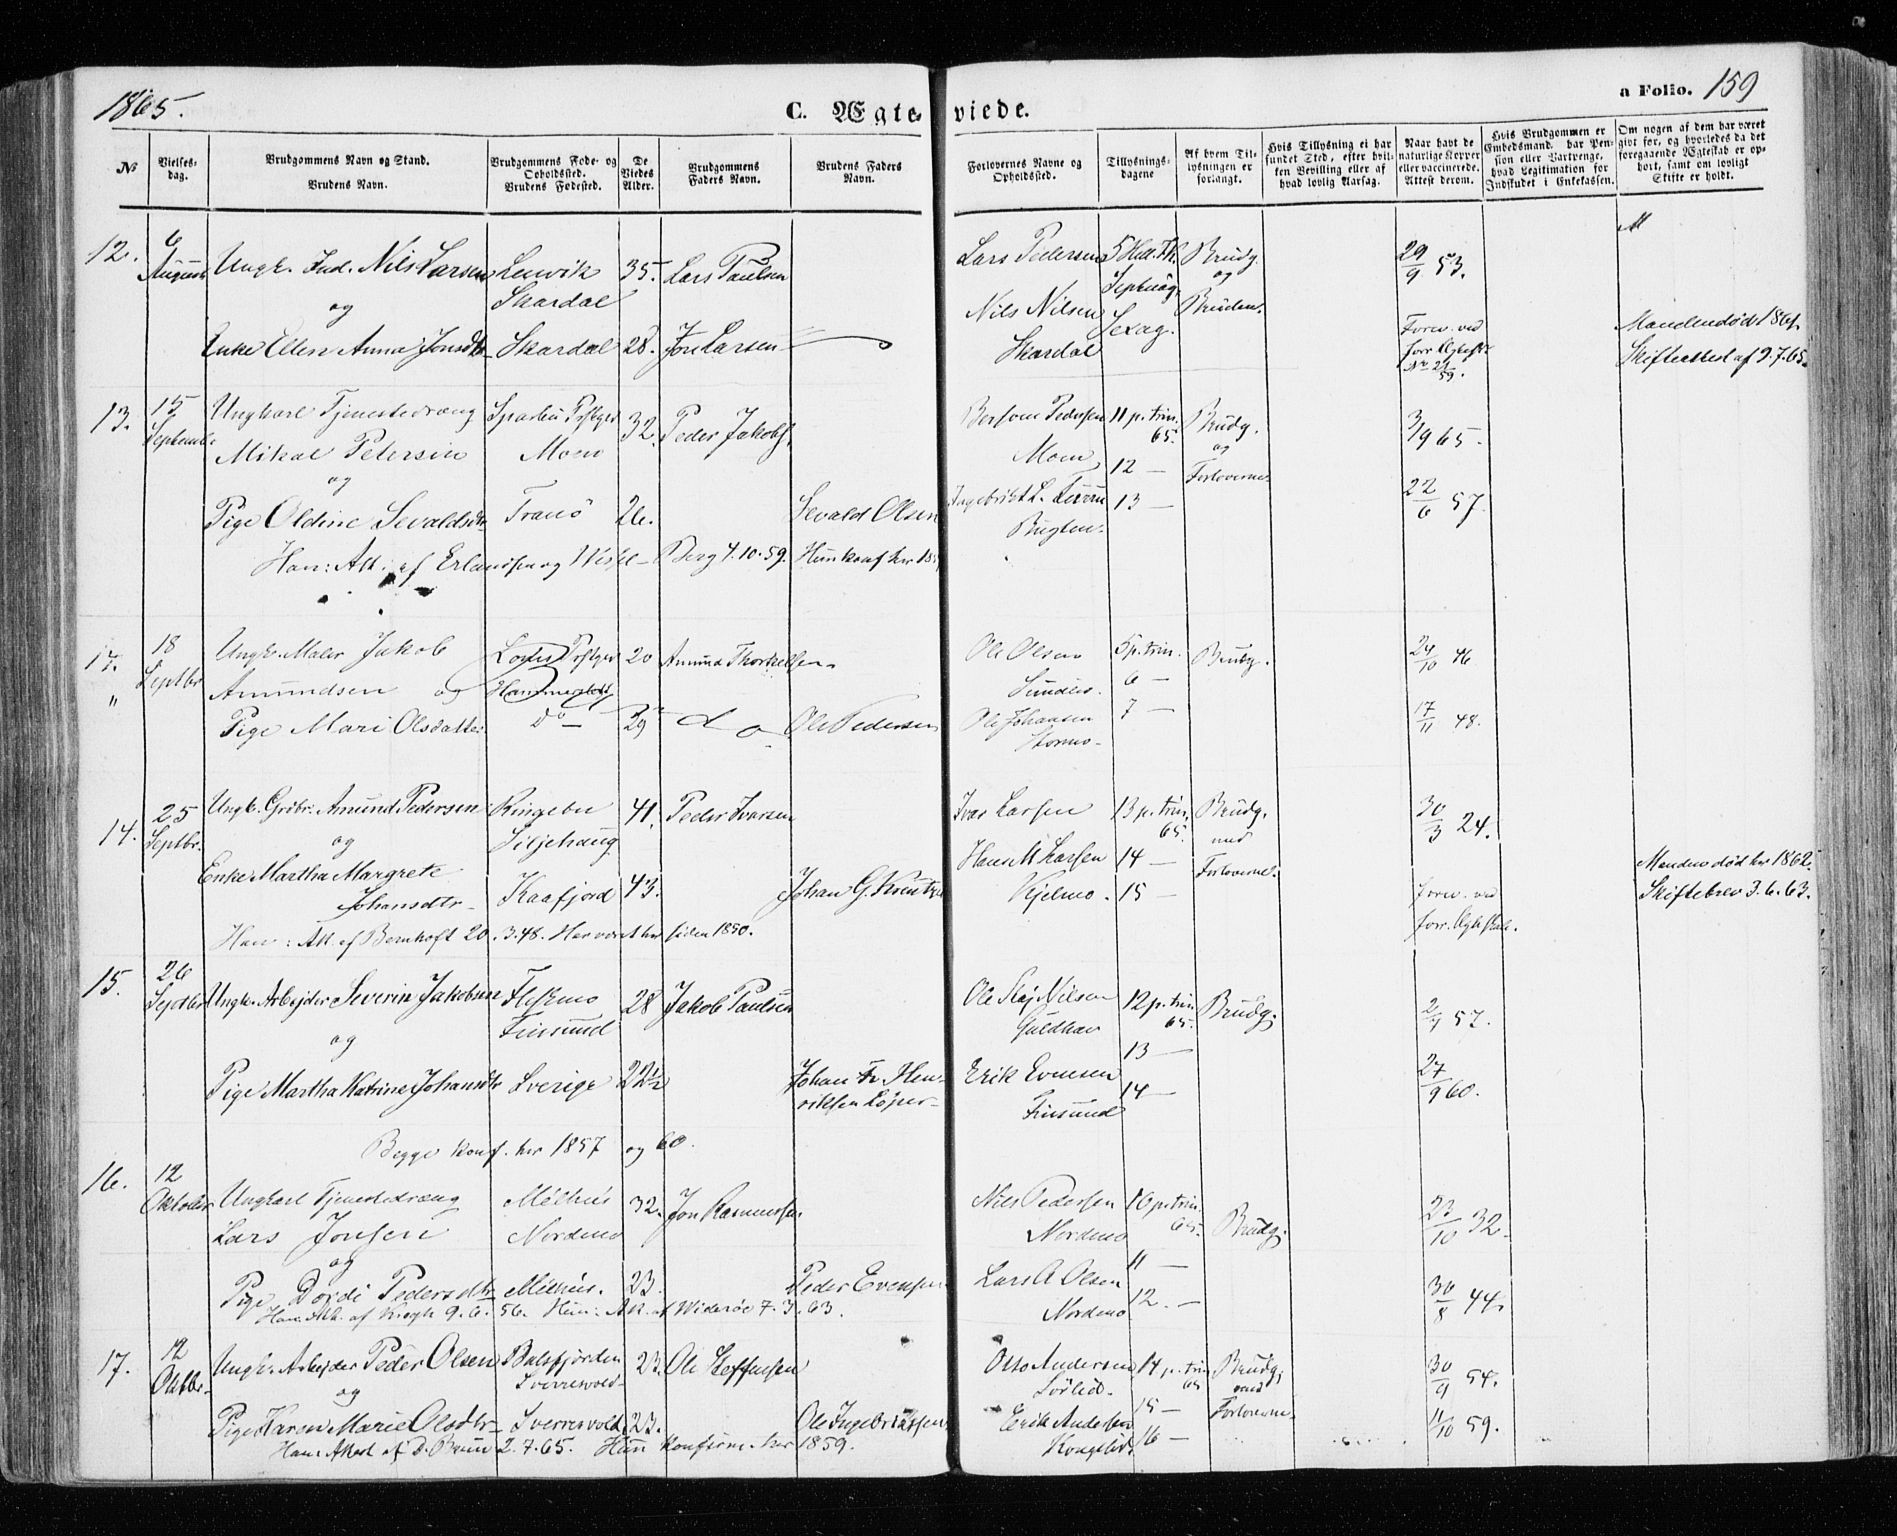 1865.
C. Ægteviede.
a Folio. 159
No
Vielsesdag.
Brudgommens Navn og Stand.
Brudens Navn.
Brudgommens Føde- og
Opholdssted.
Brudens Fødested.
De
Viedes
Alder.
Brudgommens
Faders Navn.
Brudens Faders
Navn.
Forlovernes Navne og
Opholdssted.
Tillysnings-
dagene
Af hvem Til-
lysningen er
forlangt.
Hvis Tillysning ei har
fundet Sted, efter hvil-
ken Bevilling eller af
hvad lovlig Aarsag.
Naar havt de
naturlige Kopper
eller vaccinerede.
Attest derom.
Hvis Brudgommen er
Embedsmand, har Pen-
sion eller Vartpenge,
hvad Legitimation for
Indskudet i Enkekassen.
Om nogen af dem har været
givt før, og hvorledes da det
foregaaende Ægteskab er op-
hørt, samt om lovligt
Skifte er holdt.
12.
6
August
Ungk. Ind. Nils Larsen
og
Enke Ellen Anna Jonsdtr
Lenvik
Skardal
Skardal
35
28.
Lars Paulsen
Jon Larsen
Lars Pedersen
Nils Nilsen
Skardal
5 Hel. Tk.
Septuag.
Sexag.
Brudg.
og
Bruden.
29/9 53.
Forev. ved
forr. Ægtesk.
No 21/59.
Manden død 1861.
Skifteattest af 9.7.65.
13.
15
Septembr
Ungkarl Tjenestedræng
Mikal Petersen
og
Pige Oldine Sevaldsdtr
Sparbu Præstgjed
Moen
Tranø
32.
26.
Peder Jakobs.
Sevald Olsen
Han: Att: af Erlandsen og Wessel-Berg 4.10.59. Hun konf her 18
Bersven Pedersen
Moen
Ingebrikt L.
Bugten.
11 p. trin.
65.
12 —
13 —
Brudg.
og
Forloverne
3/9 65.
22/6 57.
17.
"
18
Septbr
Ungk. Maler Jakob
Amundsen og
Pige Mari Olsdatter
Præstgjed
Do —
20
29
Amund Thorkelsen
Ole Pedersen
Ole Olsen
Ole Johansen
Stormo.
5 p. trin.
6 —
7 —
Brudg.
24/10 46
17/11 48.
14.
25
Septbr.
Ungk. Grdbr. Amund Pedersen
og
Enke Martha Margrete
Johansdtr
Ringebu
Siljehaug
Kaafjord
41.
43.
Peder Ivarsen
Johan G. Kreutzer
Han: Att. af Bernhoft 20.3.48. Har været her siden 1850.
Ivar Larsen
Hans M Larsen
Kjelmo.
13 p. trin.
65.
14 —
15 —
Brudg.
med
Forloverne.
30/3 24.
forev. ved
forr. Ægteskab.
Manden død her 1862.
Skiftebrev 3.6.63.
15.
26
Septbr
Ungk. Arbejder Severin Jakobsen
og
Pige Martha Katrine Johansdtr
Fleskmo
Finsund
Sverige
28
22½
Jakob Paulsen
Johan Fr. Hen-
riksen Løper
Begge konf. her 1857 og 60.
Ole Kaj Nilsen
Guldhav
Erik Evensen
Finsund
12 p. trin
65.
13 —
14 —
Brudg.
2/9 57.
27/9 60.
16.
12
Oktober
Ungkarl Tjenestedræng
Lars Jonsen
og
Pige Dordi Pedersdtr
Melhus
Nordmo
Melhus.
32.
23.
Jon Rasmussen
Peder Evensen
Han: Att. af Krogh 9.6.56. Hun: Att. af Widerøe 7.3.63.
Nils Pedersen
Nordmo
Lars A Olsen
Nordmo
10 p. trin.
65.
11 —
12. —
Brudg.
23/10 32.
30/8 44.
17.
12
Oktbr.
Ungk. Arbejder Peder Olsen
og
Pige Karen Marie Olsdtr
Balsfjorden
Sverresvold
Sverresvold
23.
23.
Ole Steffensen
Ole Ingebrigtsen
Han: Attest af D. Bruun 2.7.65. Hun konfirm. her 1859.
Otto Andersen
Sørlid.
Erik Andersen
Kongslid.
14 p. trin
65
15 —
16 —
Brudg.
med
Forloverne.
30/9 54.
11/10 59.